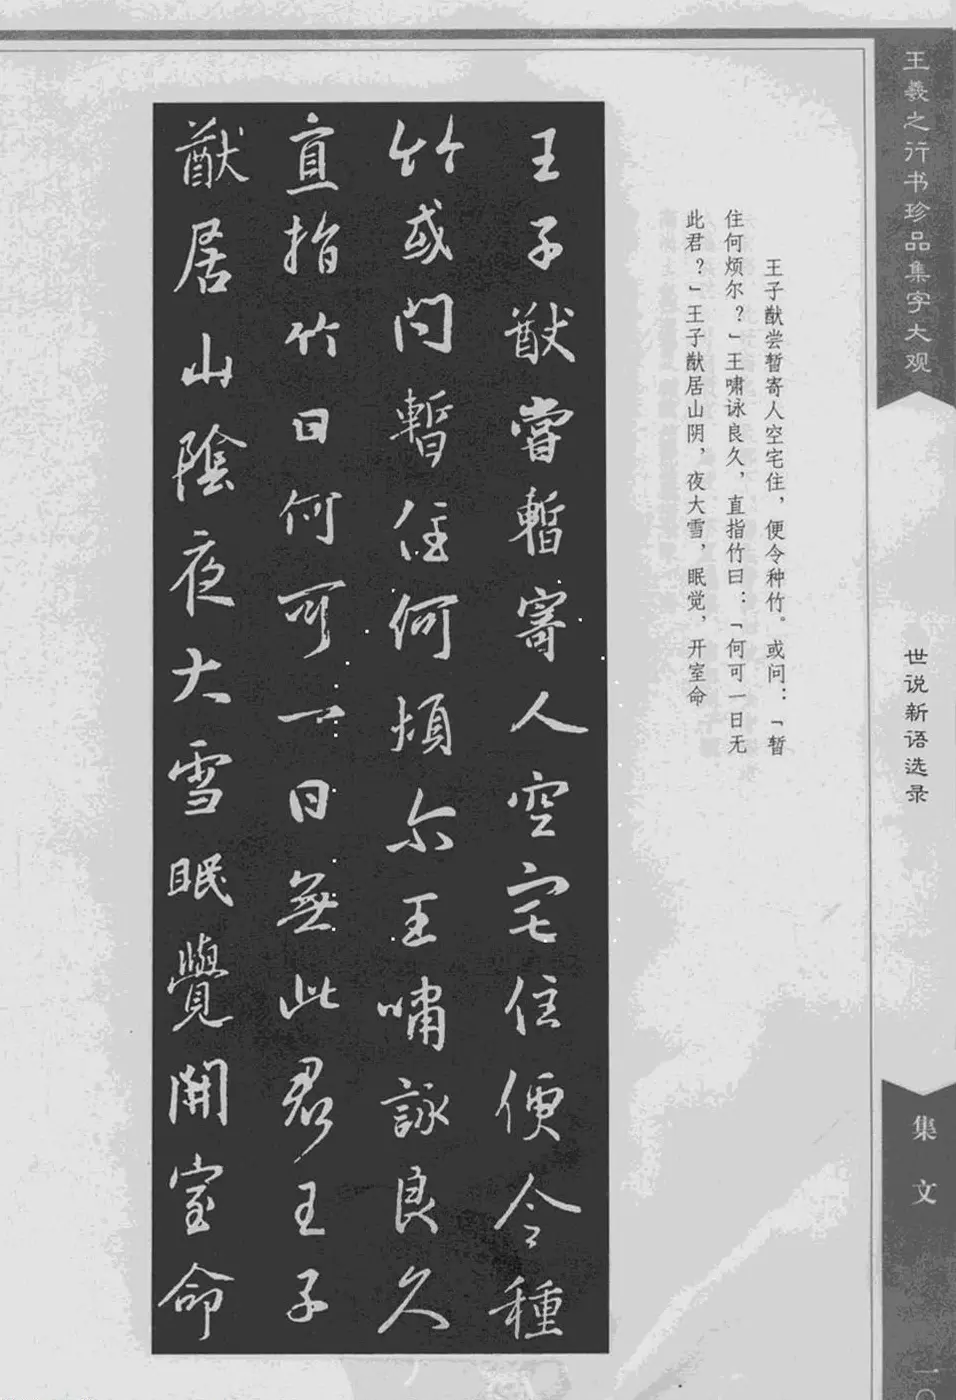 王羲之行书珍品集字大观
世说新语选录
集文
王子猷尝暂寄人空宅住，便令种竹。或问：「暂
住何烦尔？」王啸咏良久，直指竹曰：「何可一日无
此君？」王子猷居山阴，夜大雪，眠觉，开室命
王子猷嘗暫寄人空宅住便令種
竹或问暫住何煩尔王嘯詠良久
直指竹曰何可一日無此君王子
猷居山陰夜大雪眠覺開室命